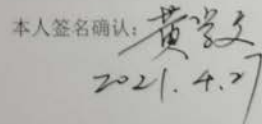 本人签名确认：黄学文
2021.4.27